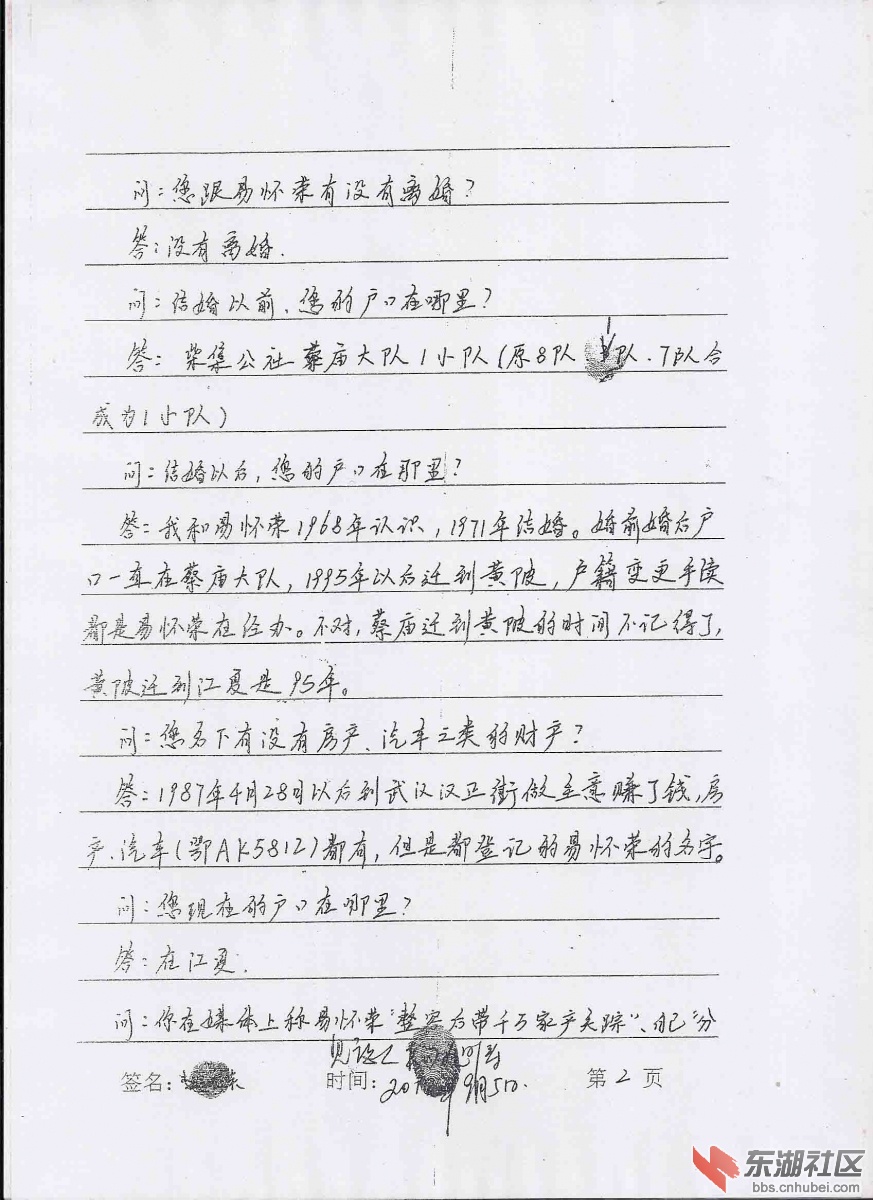 问：您跟易怀荣有没有离婚？
答：没有离婚.
问：结婚以前、您的户口在哪里？
答：柴集公社蔡庙大队1小队（原8队 队、7队合
成为1小队）
问：结婚以后，您的户口在那里？
答：我和易怀荣1968年认识，1971年结婚。婚前婚后户
口一直在蔡庙大队，1995年以后迁到黄陂，户籍变更手续
都是易怀荣在经办。不对，蔡庙迁到黄陂的时间不记得了，
黄陂迁到江夏是95年。
问：您名下有没有房产、汽车之类的财产？
答：1987年4月28日以后到武汉汉正街做生意赚了钱，房
产、汽车（鄂AK5812）都有，但是都登记的易怀荣的名字。
问：您现在的户口在哪里？
答：在江夏.
问：你在媒体上称易怀荣“整容后带千万家产失踪”、自己“分
见证人
签名： 时间： 9月5日. 第2页
东湖社区
bbs.cnhubei.com